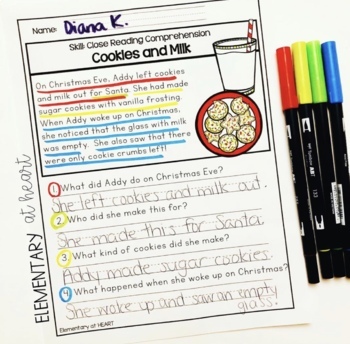 Name: Diana K.
Skill: Close Reading Comprehension
Cookies and Milk
On Christmas Eve, Addy left cookies
and milk out for Santa. She had made
sugar cookies with vanilla frosting.
When Addy woke up on Christmas,
she noticed that the glass with milk
was empty. She also saw that there
were only cookie crumbs left!
1 What did Addy do on Christmas Eve?
She left cookies and milk out.
2. Who did she make this for?
She made this for Santa.
3 What kind of cookies did she make?
Addy made sugar cookies.
4 What happened when she woke up on Christmas?
She woke up and saw an empty
glass!
Elementary at HEART
ELEMENTARY at heart